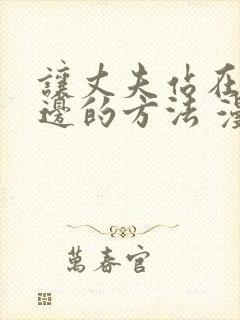 讓丈夫佔在
邊的方法 漫
萬春官